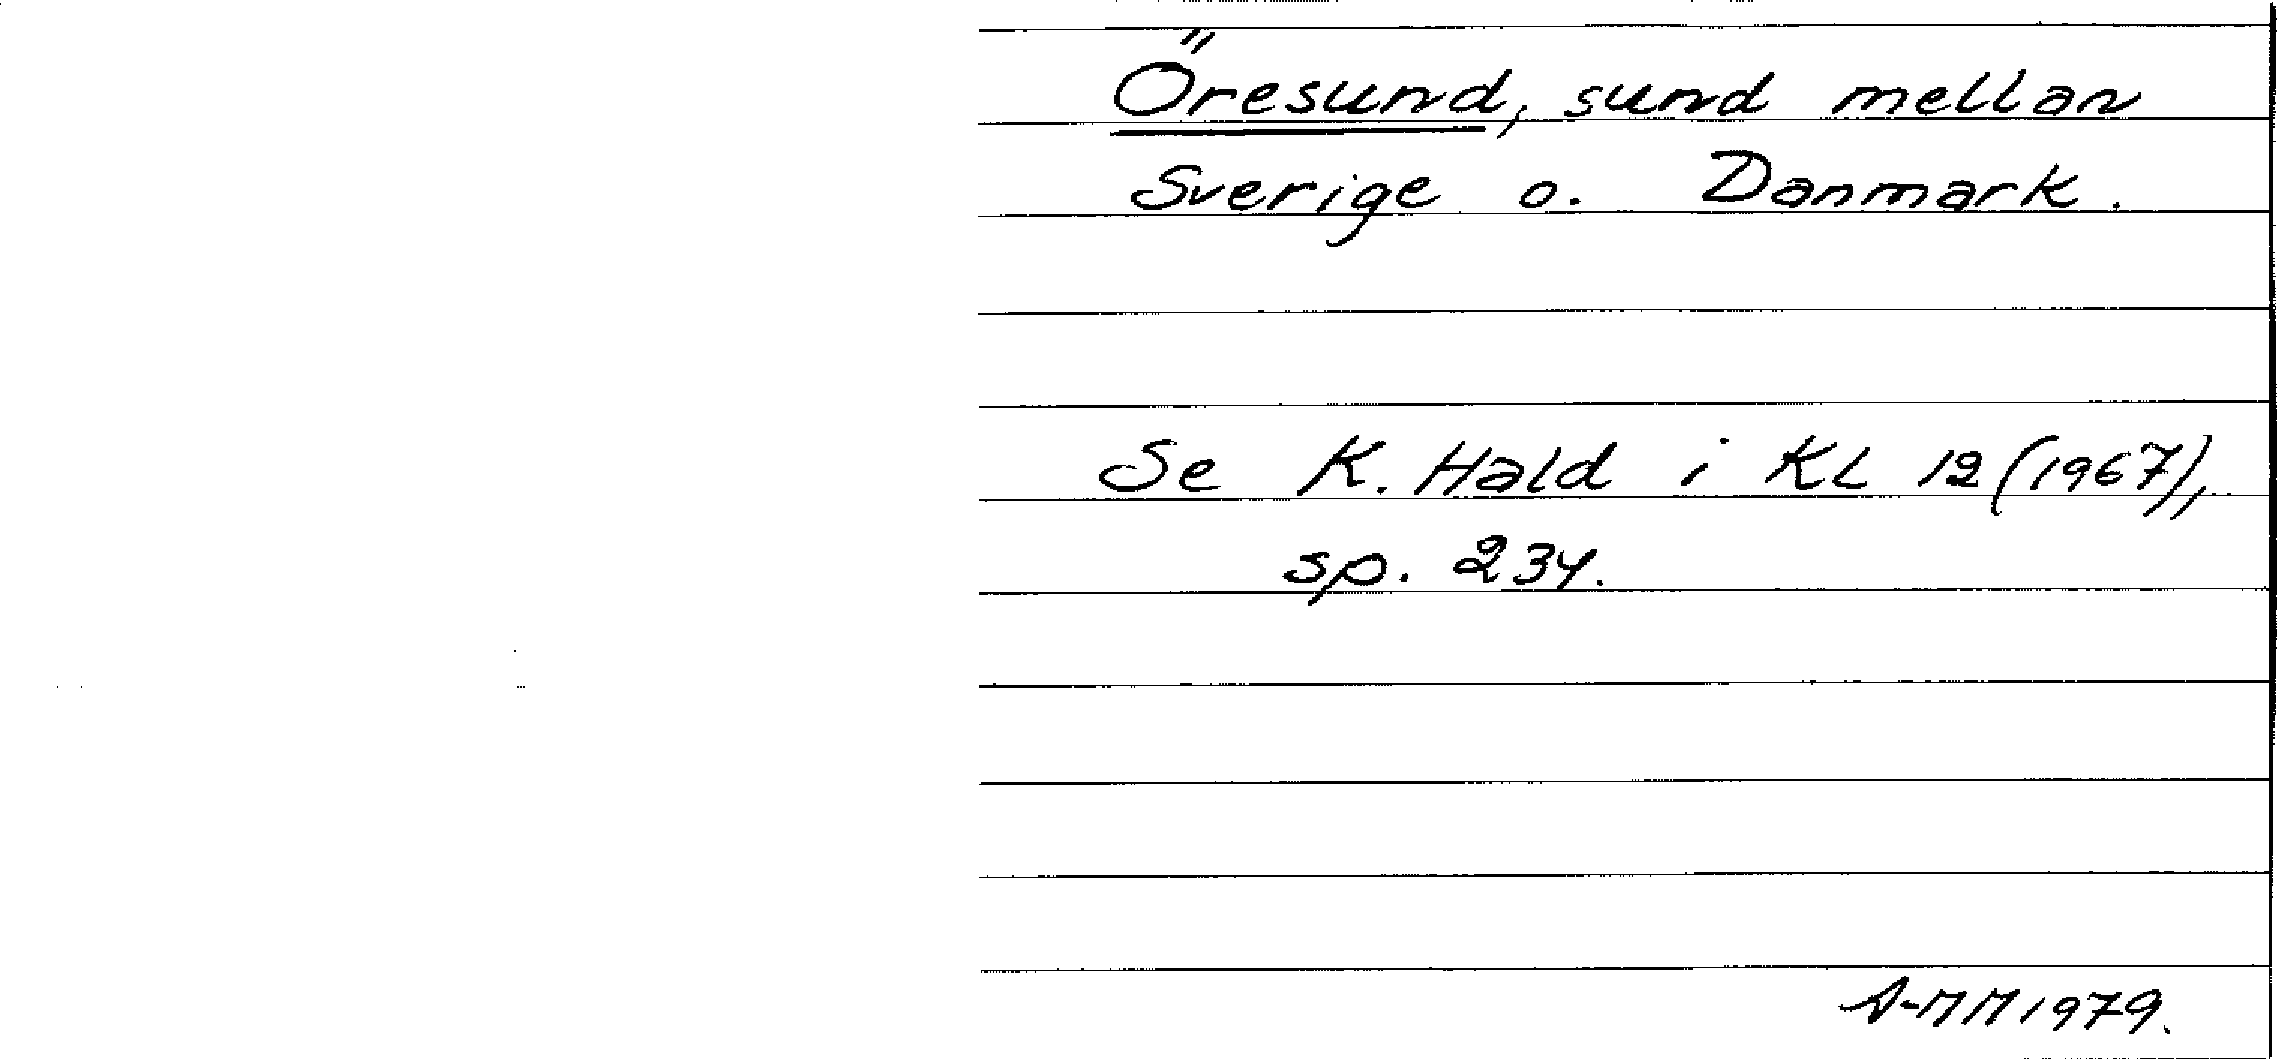 Öresund, sund mellan
Sverige o. Danmark.
Se K. Hald i KL 12 (1967),
sp. 234.
A-MM 1979.